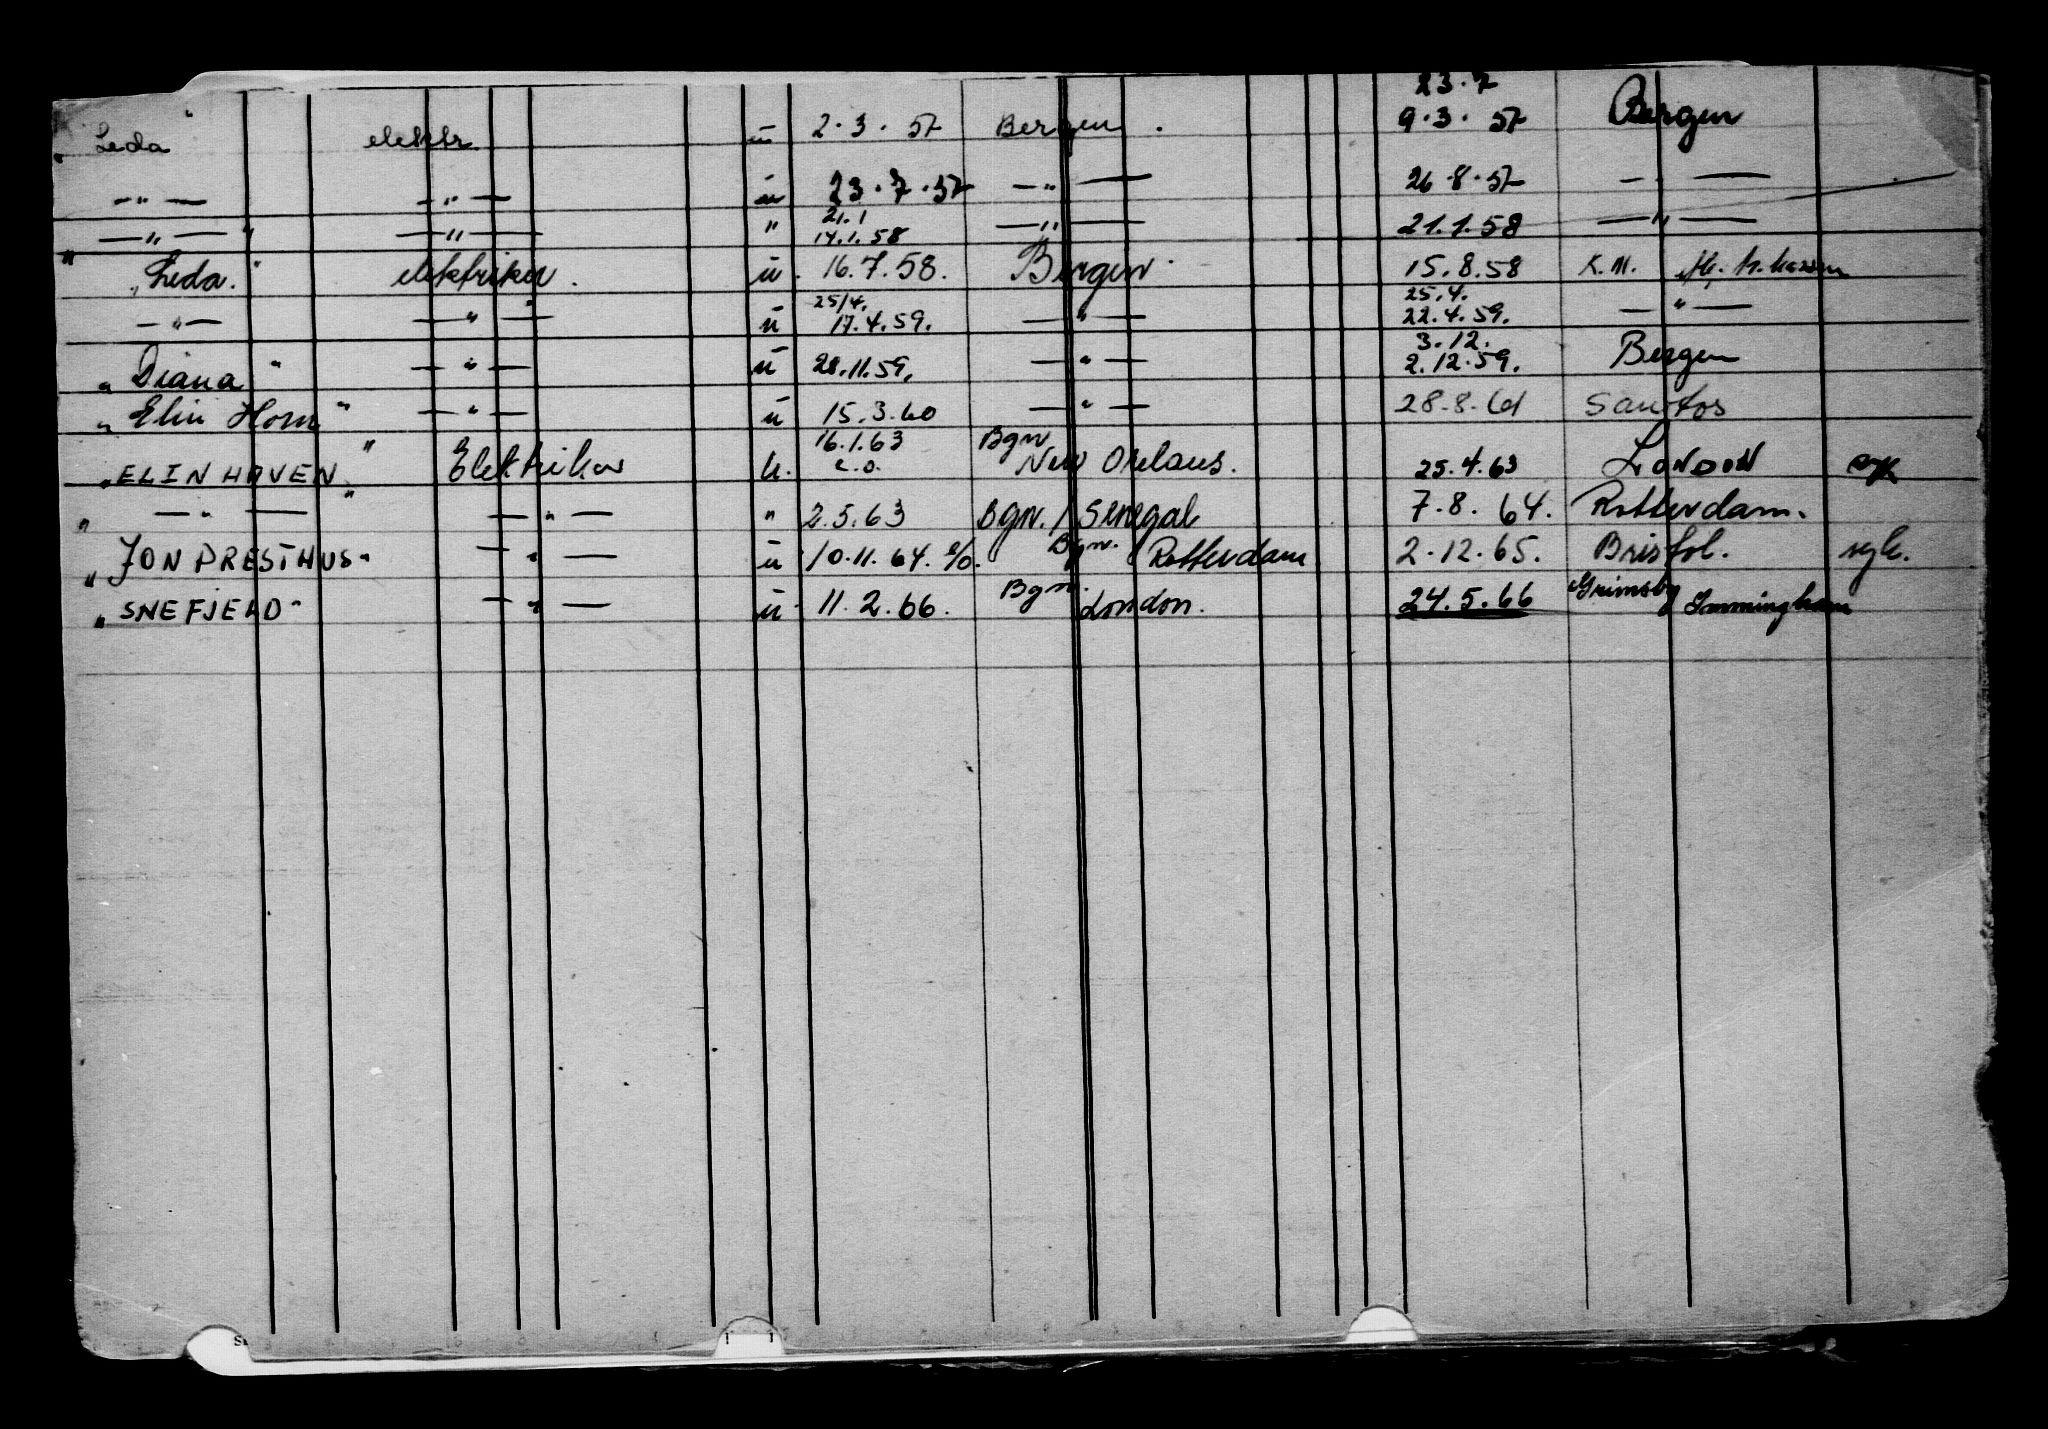 23.7
" Leda " elektr. u 2.3.57 Bergen. 9.3.57 Bergen
—"— —"— u 23.7.57 —"— 26.8.57 — —
—"— " —"— " 21.1 14.1.58 —"— 21.1.58 —"—
" Leda." elektriker. u. 16.7.58. Bergen 15.8.58 K.M.
—"— —"— u 25/4. 17.4.59. —"— 25.4. 22.4.59. —"—
" Diana " —"— u 28.11.59. —"— 3.12. 2.12.59. Bergen
" Elin Horn " —"— u 15.3.60 —"— 28.8.61 Santos
" ELIN HAVEN " Elektriker u. 16.1.63 e.o. Bgn New Orleans. 25.4.63 LONDON syk
" —"— " —"— " 2.5.63 Bgn. / Senegal 7.8.64. Rotterdam.
" JON PRESTHUS " —"— u 10.11.64. e/o. Bgn. Rotterdam 2.12.65. Bristol. syk.
" SNEFJELD " —"— u 11.2.66. Bgn. London. 24.5.66 Grimsby Immingham